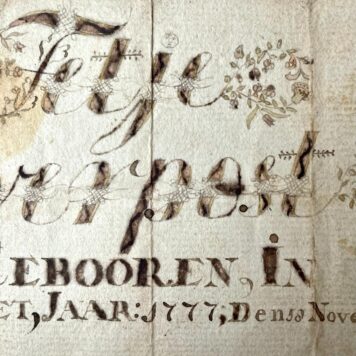 Tetje
verpost
EBOOREN, IN
ET, JAAR: 1777, Den 18 Nove